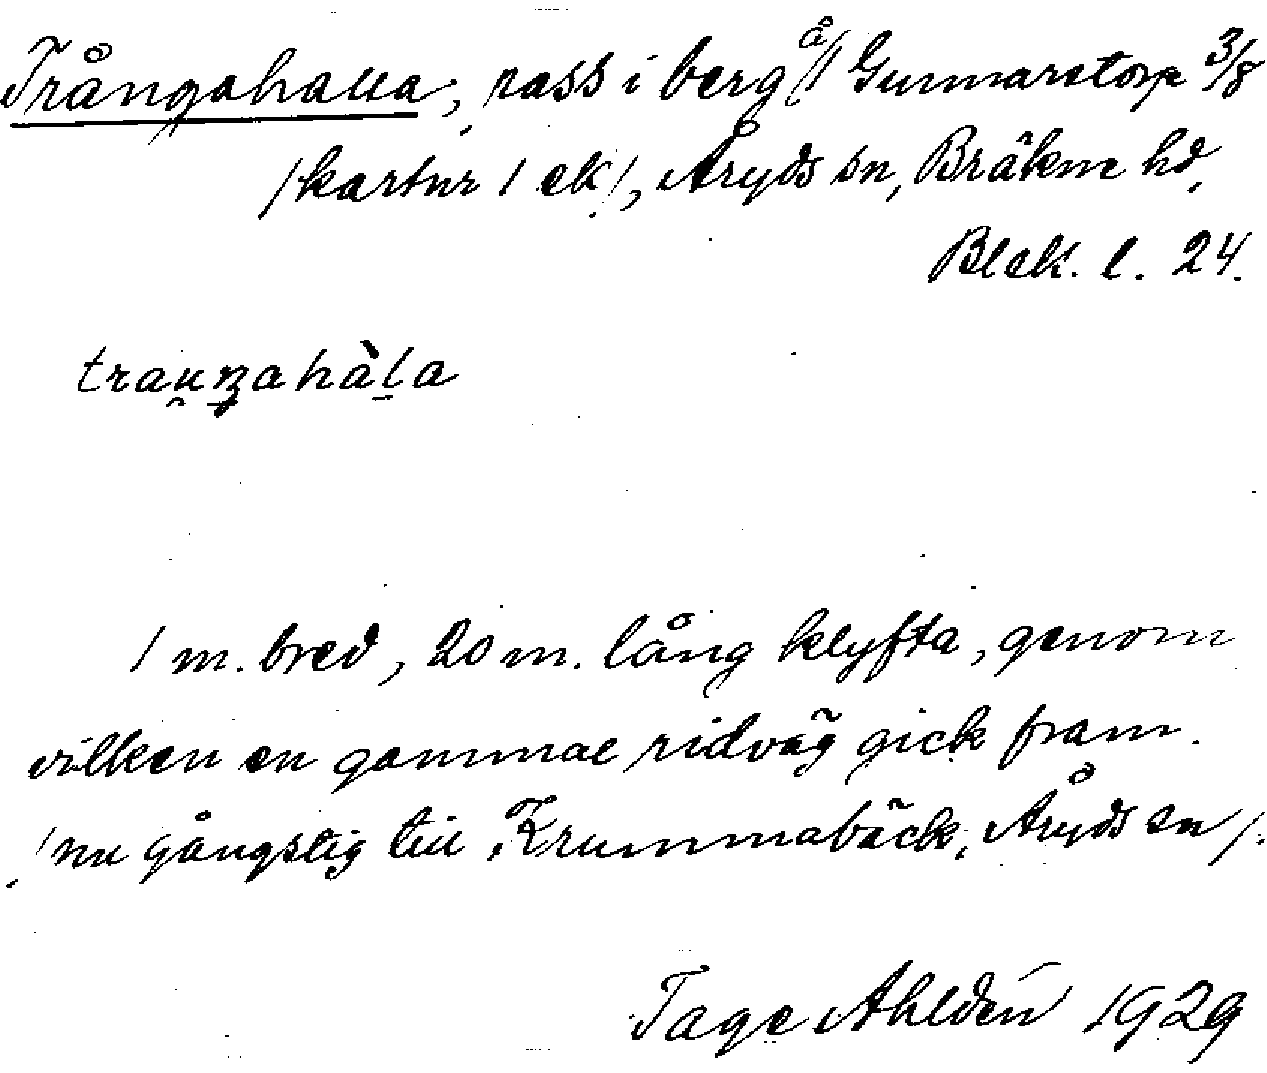 Trångahalla, pass i berg å/ Gunnaretorp 3/8
/kartur 1 ek/, Åryds sn, Bräkne hd,
Blek. l. 24.
trau̯ŋahàl̠a
1 m. bred, 20 m. lång klyfta, genom
vilken en gammal ridväg gick fram.
/nu gångstig till Krummabäck, Åryds sn/.
Tage Ahldén 1929